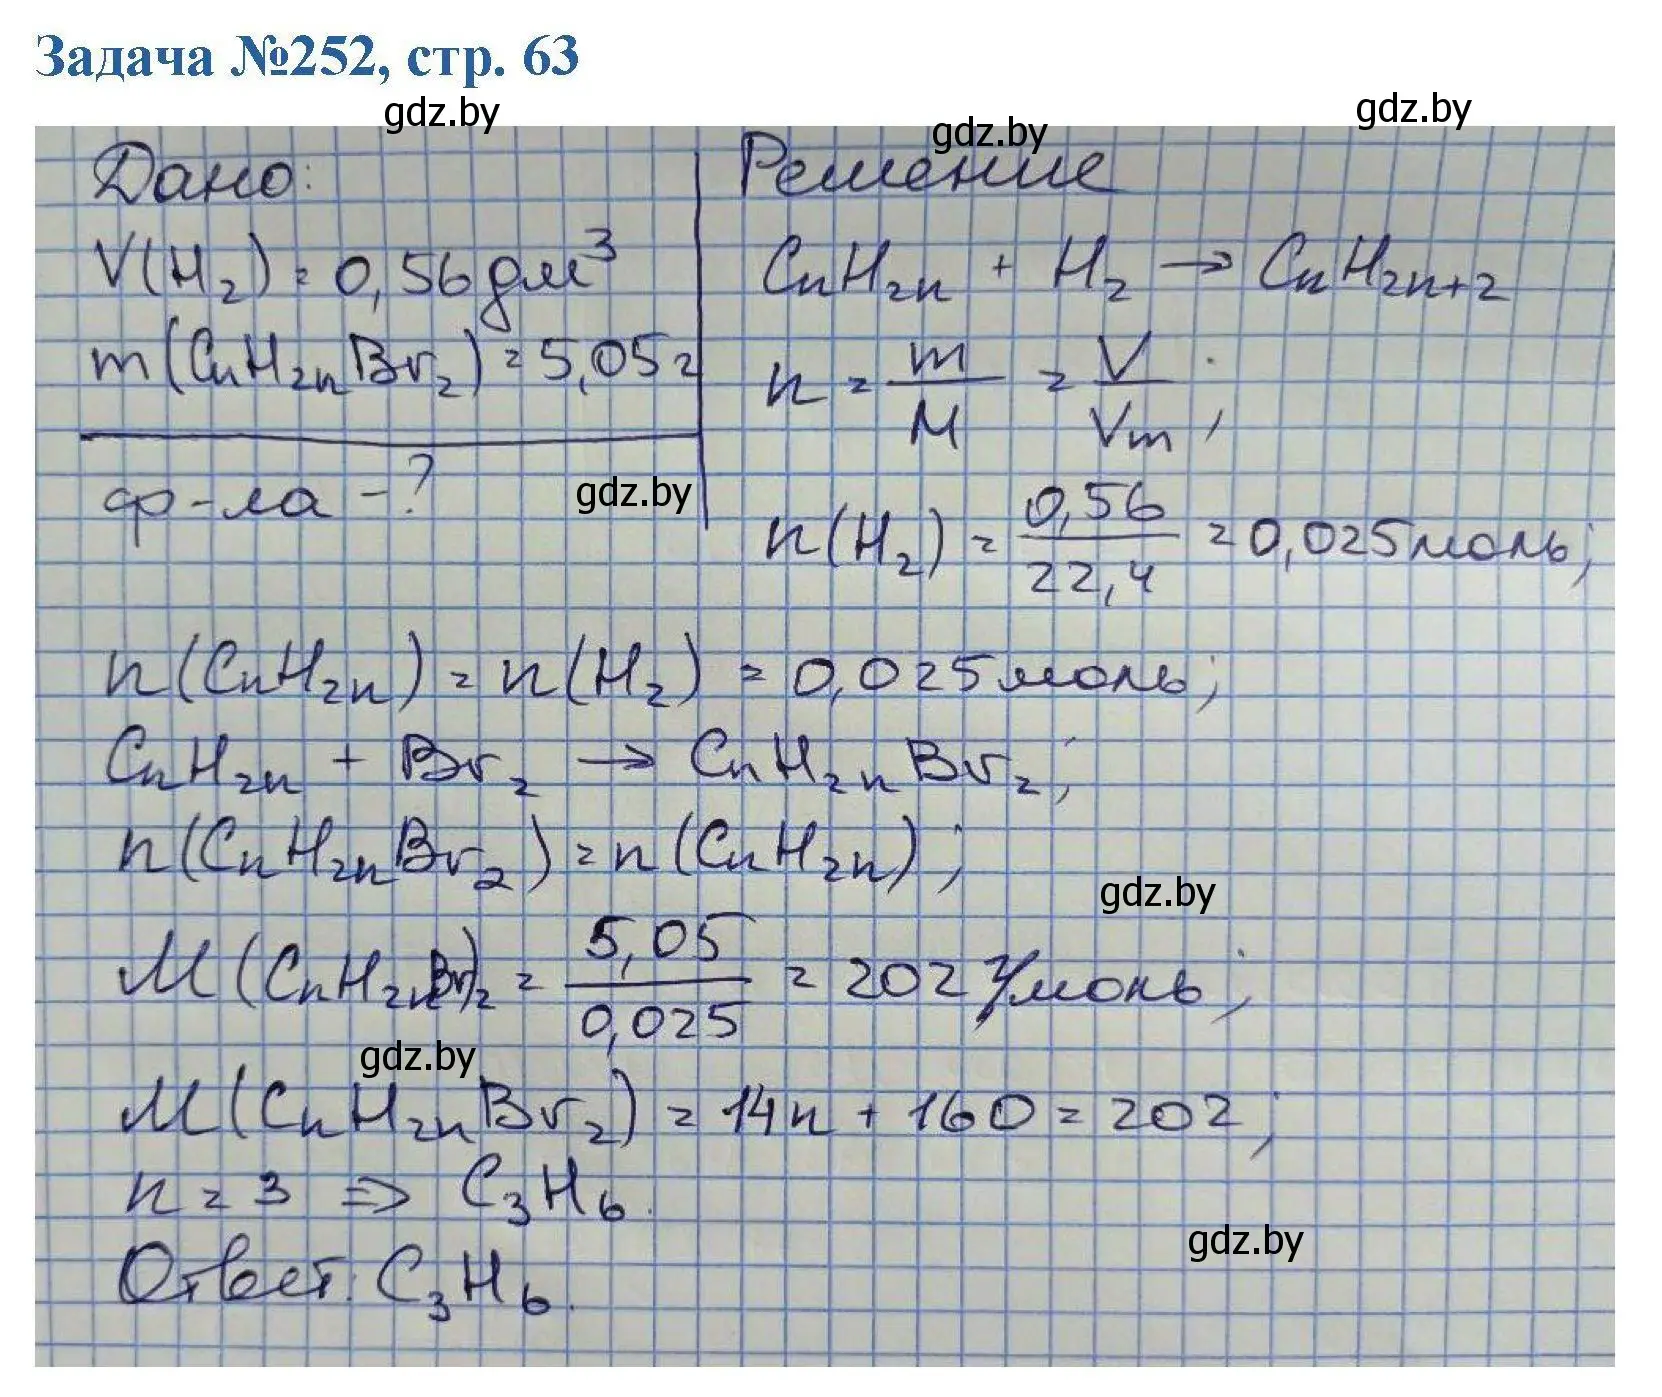 Задача №252, стр. 63
gdz.by
gdz.by
gdz.by
Дано:
V(H₂) = 0,56 дм³
m(CnH₂nBr₂) = 5,05 г
ф-ла - ?
gdz.by
Решение
CnH₂n + H₂ → CnH₂n+₂
n = m/M = V/Vm;
n(H₂) = 0,56/22,4 = 0,025 моль;
n(CnH₂n) = n(H₂) = 0,025 моль;
CnH₂n + Br₂ → CnH₂nBr₂;
n(CnH₂nBr₂) = n(CnH₂n);
gdz.by
M(CnH₂nBr)₂ = 5,05/0,025 = 202 г/моль;
gdz.by
M(CnH₂nBr₂) = 14n + 160 = 202;
n = 3 => C₃H₆.
gdz.by
Ответ: C₃H₆.